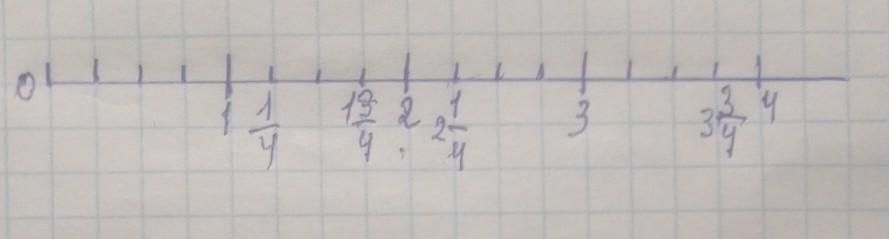 0 1 1/4 1 3/4 2 2 1/4 3 3 3/4 4